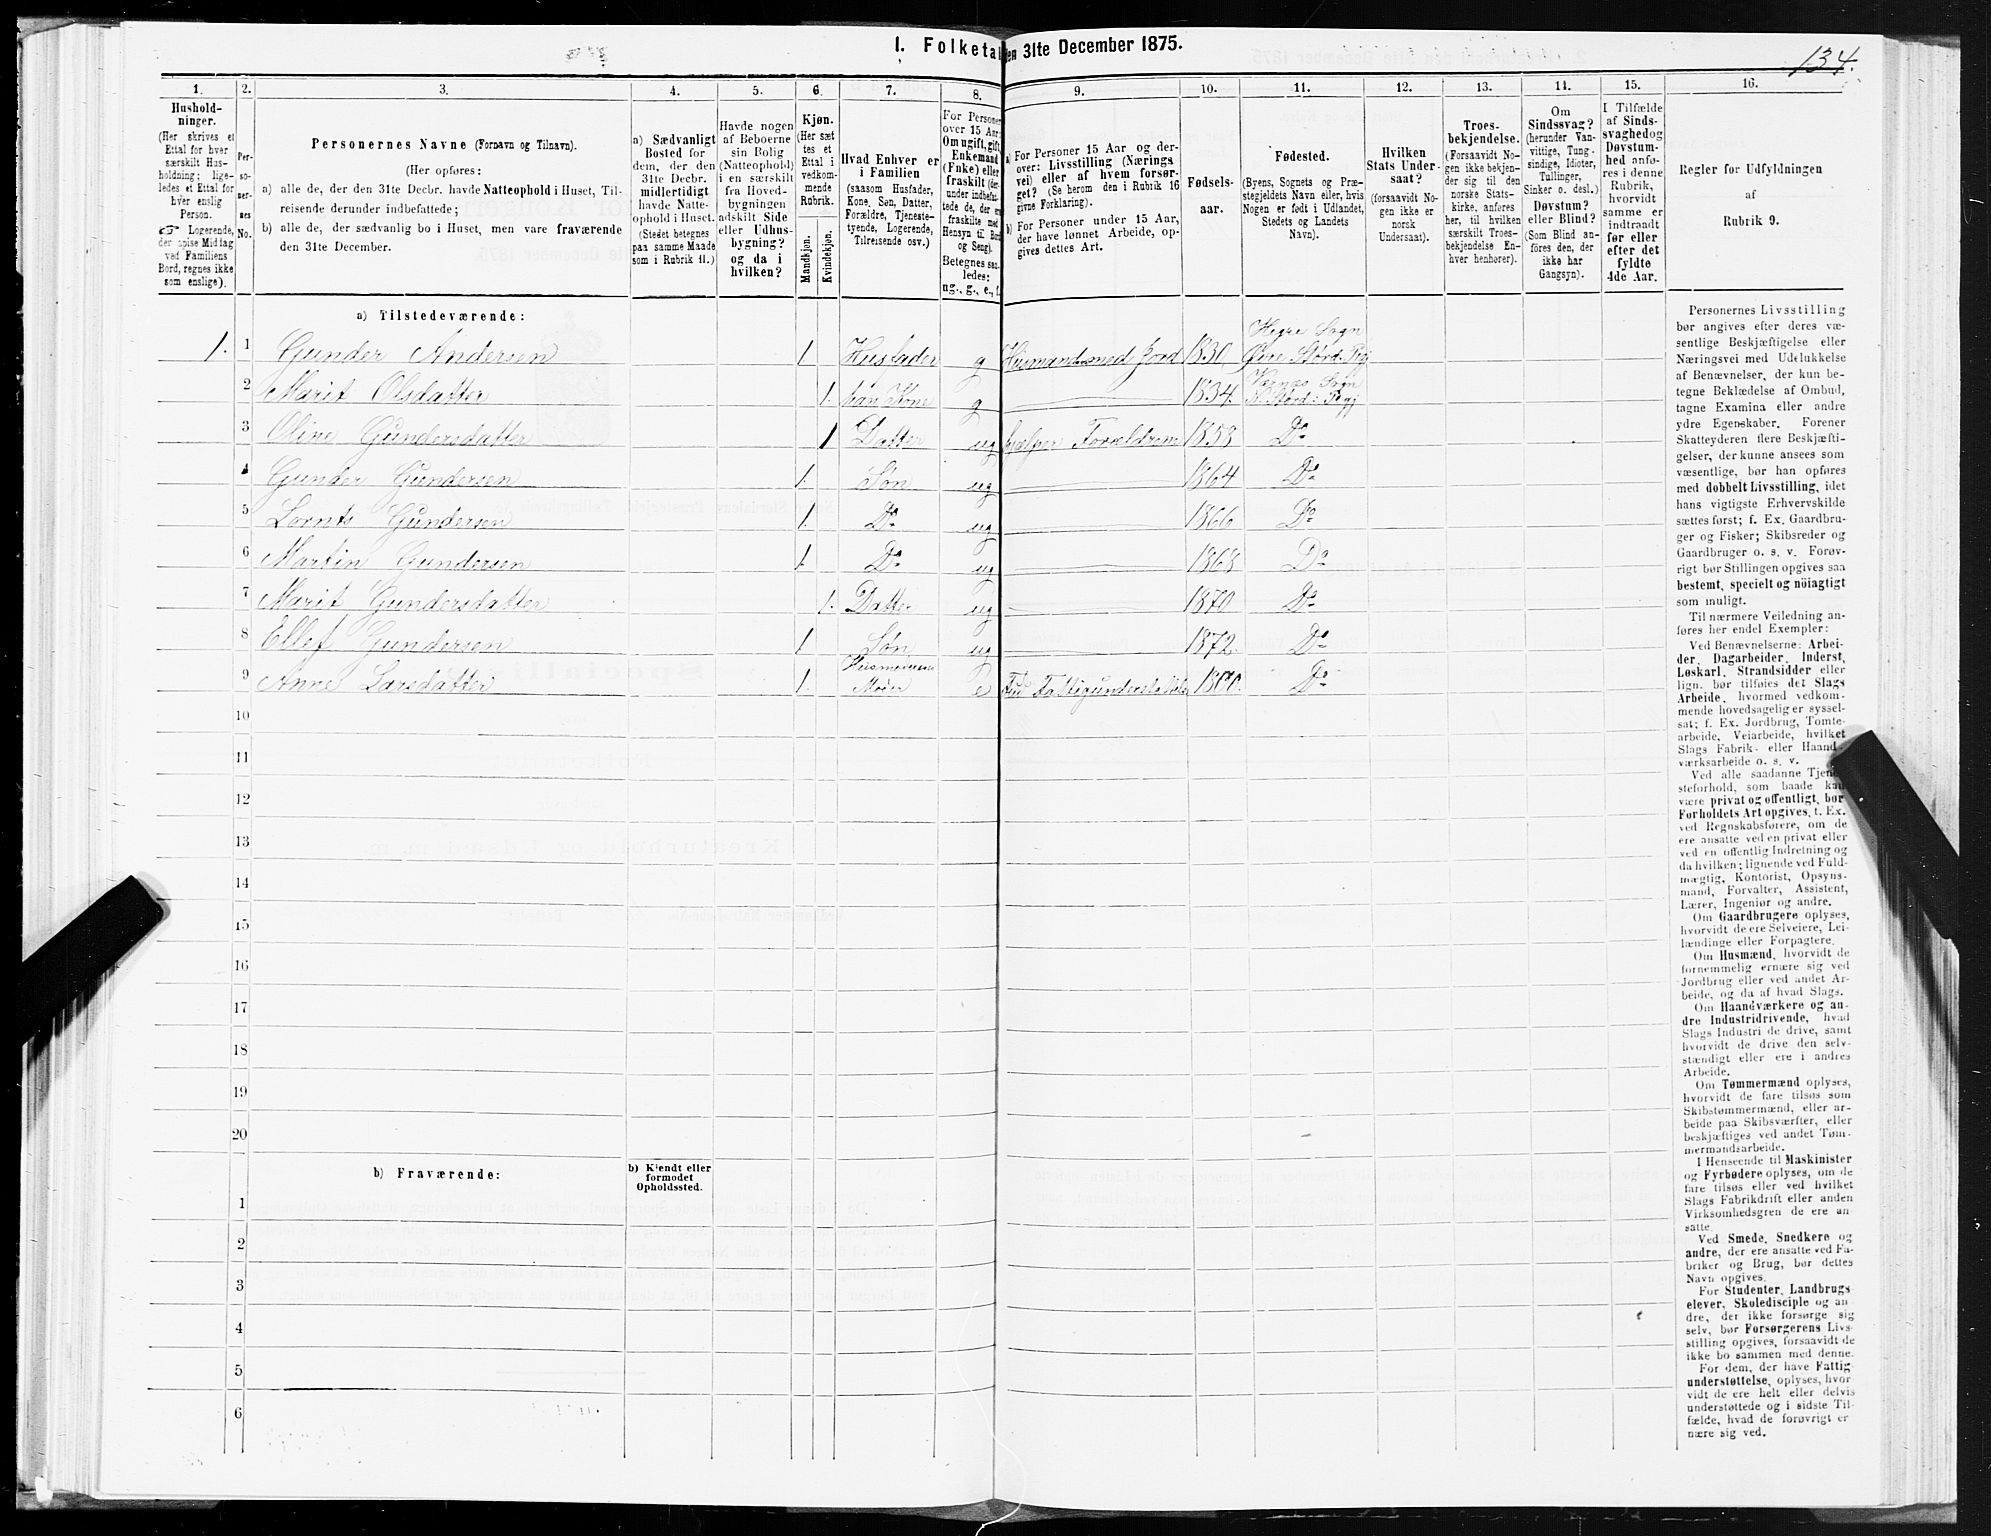 1. Folketal den 31te December 1875.
134.
1. 2. 3. 4. 5. 6. 7. 8. 9. 10. 11. 12. 13. 14. 15. 16.
Hushold-
ninger.
(Her skrives et
Ettal for hver
særskilt Hus-
holdning; lige-
ledes et Ettal for
hver enslig
Person.
☞ Logerende,
der spise Middag
ved Familiens
Bord, regnes ikke
som enslige).
Per-
so-
ner-
nes
No.
Personernes Navne (Fornavn og Tilnavn).
(Her opføres:
a) alle de, der den 31te Decbr. havde Natteophold i Huset, Til-
reisende derunder indbefattede;
b) alle de, der sædvanlig bo i Huset, men vare fraværende
den 31te December.
a) Sædvanligt
Bosted for
dem, der den
31te Decbr.
midlertidigt
havde Natte-
ophold i Huset.
(Stedet betegnes
paa samme Maade
som i Rubrik 11.)
Havde nogen
af Beboerne
sin Bolig
(Natteophold)
i en særskilt
fra Hoved-
bygningen
adskilt Side
eller Udhus-
bygning?
og da i
hvilken?
Kjøn.
(Her sæt
tes et
Ettal i
vedkom-
mende
Rubrik.
Mandkjøn.
Kvindekjøn.
Hvad Enhver er
i Familien
(saasom Husfader,
Kone, Søn, Datter,
Forældre, Tjeneste-
tyende, Logerende,
Tilreisende osv.)
For Personer
over 15 Aar:
Om ugift, gift,
Enkemand
(Enke) eller
fraskilt (der-
under indbefat-
tede de, der er
fraskilte med
Hensyn til Bord
og Seng).
Betegnes saa-
ledes:
ug., g., e., f.
a) For Personer 15 Aar og der-
over: Livsstilling (Nærings
vei) eller af hvem forsør-
get? (Se herom den i Rubrik 16
givne Forklaring).
b) For Personer under 15 Aar,
der have lønnet Arbeide, op-
gives dettes Art.
Fødsels-
aar.
Fødested.
(Byens, Sognets og Præ-
stegjeldets Navn eller, hvis
Nogen er født i Udlandet,
Stedets og Landets
Navn).
Hvilken
Stats Under-
saat?
(forsaavidt No-
gen ikke er
norsk
Undersaat).
Troes-
bekjendelse.
(Forsaavidt No-
gen ikke bekjen-
der sig til den
norske Stats-
kirke, anføres
her, til hvilken
særskilt Troes-
bekjendelse En-
hver henhører).
Om
Sindssvag?
(herunder Van-
vittige, Tung-
sindige, Idioter,
Tullinger,
Sinker o. desl.)
Døvstum?
eller Blind?
(Som Blind an-
føres den, der
ikke har
Gangsyn).
I Tilfælde
af Sinds-
svaghed og
Døvstum-
hed anfø-
res i denne
Rubrik,
hvorvidt
samme er
indtraadt
før eller
efter det
fyldte
4de Aar.
Regler for Udfyldningen
af
Rubrik 9.
a) Tilstedeværende:
1. 1 Gunder Andersen 1 Husfader g Husmand med Jord 1830 Hegre Sogn Øvre Størd. Prgj
2 Marit Olsdatter 1. hans Kone g 1834. Værnes Sogn N. Størd: Prgj
3 Oline Gundersdatter 1 Datter ug hjelper Forældrene 1858 Do
4 Gunder Gundersen 1. Søn ug 1864 Do
5 Lornts Gundersen 1. Do ug 1866 Do
6 Martin Gundersen 1 Do ug 1868 Do
7 Marit Gundersdatter 1. Datter ug 1870 Do
8 Ellef Gundersen 1 Søn ug 1872. Do
9 Anne Larsdatter 1. Husmoderens Moder e Fattigunderstøttelse 1800. Do
10
11
12
13
14
15
16
17
18
19
20
b) Fraværende:
b) Kjendt eller
formodet
Opholdssted.
1
2
3
4
5
6
Personernes Livsstilling
bør angives efter deres væ-
sentlige Beskjæftigelse eller
Næringsvei med Udelukkelse
af Benævnelser, der kun be-
tegne Beklædelse af Ombud,
tagne Examina eller andre
ydre Egenskaber. Forener
Skatteyderen flere Beskjæfti-
gelser, der kunne ansees som
væsentlige, bør han opføres
med dobbelt Livsstilling, idet
hans vigtigste Erhvervskilde
sættes først; f. Ex. Gaardbru-
ger og Fisker; Skibsreder og
Gaardbruger o. s. v. Forøv-
rigt bør Stillingen opgives saa
bestemt, specielt og nöiagtigt
som muligt.
Til nærmere Veiledning an-
føres her endel Exempler:
Ved Benævnelserne: Arbei-
der, Dagarbeider, Inderst,
Løskarl, Strandsidder eller
lign. bør tilføies det Slags
Arbeide, hvormed vedkom-
mende hovedsagelig er syssel-
sat; f. Ex. Jordbrug, Tomte-
arbeide, Veiarbeide, hvilket
Slags Fabrik- eller Haand-
værksarbeide o. s. v.
Ved alle saadanne Tjene-
steforhold, som baade kan
være privat og offentligt, bør
Forholdets Art opgives, t. Ex.
ved Regnskabsførere, om de
ere ansatte ved en privat eller
ved en offentlig Indretning og
da hvilken; lignende ved Fuld-
mægtig, Kontorist, Opsyns-
mand, Forvalter, Assistent,
Lærer, Ingeniør og andre.
Om Gaardbrugere oplyses,
hvorvidt de ere Selveiere, Lei-
lændinge eller Forpagtere.
Om Husmænd, hvorvidt de
fornemmelig ernære sig ved
Jordbrug eller ved andet Ar-
beide, og da af hvad Slags.
Om Haandværkere og an-
dre Industridrivende, hvad
Slags Industri de drive, samt
hvorvidt de drive den selv-
stændigt eller ere i andres
Arbeide.
Om Tømmermænd oplyses,
hvorvidt de fare tilsøs som
Skibstømmermænd, eller ar-
beide paa Skibsværfter, eller
beskjæftiges ved andet Tøm-
mermandsarbeide.
I Henseende til Maskinister
og Fyrbødere oplyses, om de
fare tilsøs eller ved hvilket
Slags Fabrikdrift eller anden
Virksomhedsgren de ere an-
satte.
Ved Smede, Snedkere og
andre, der ere ansatte ved Fa-
briker og Brug, bør dettes
Navn opgives.
For Studenter, Landbrugs
elever, Skoledisciple og an-
dre, der ikke forsørge sig
selv, bør Forsørgerens Livs-
stilling opgives, forsaavidt de
ikke bo sammen med denne.
For dem, der have Fattig-
understøttelse, oplyses, hvor-
vidt de ere helt eller delvis
understøttede og i sidste Til-
fælde, hvad de forøvrigt er-
nære sig ved.